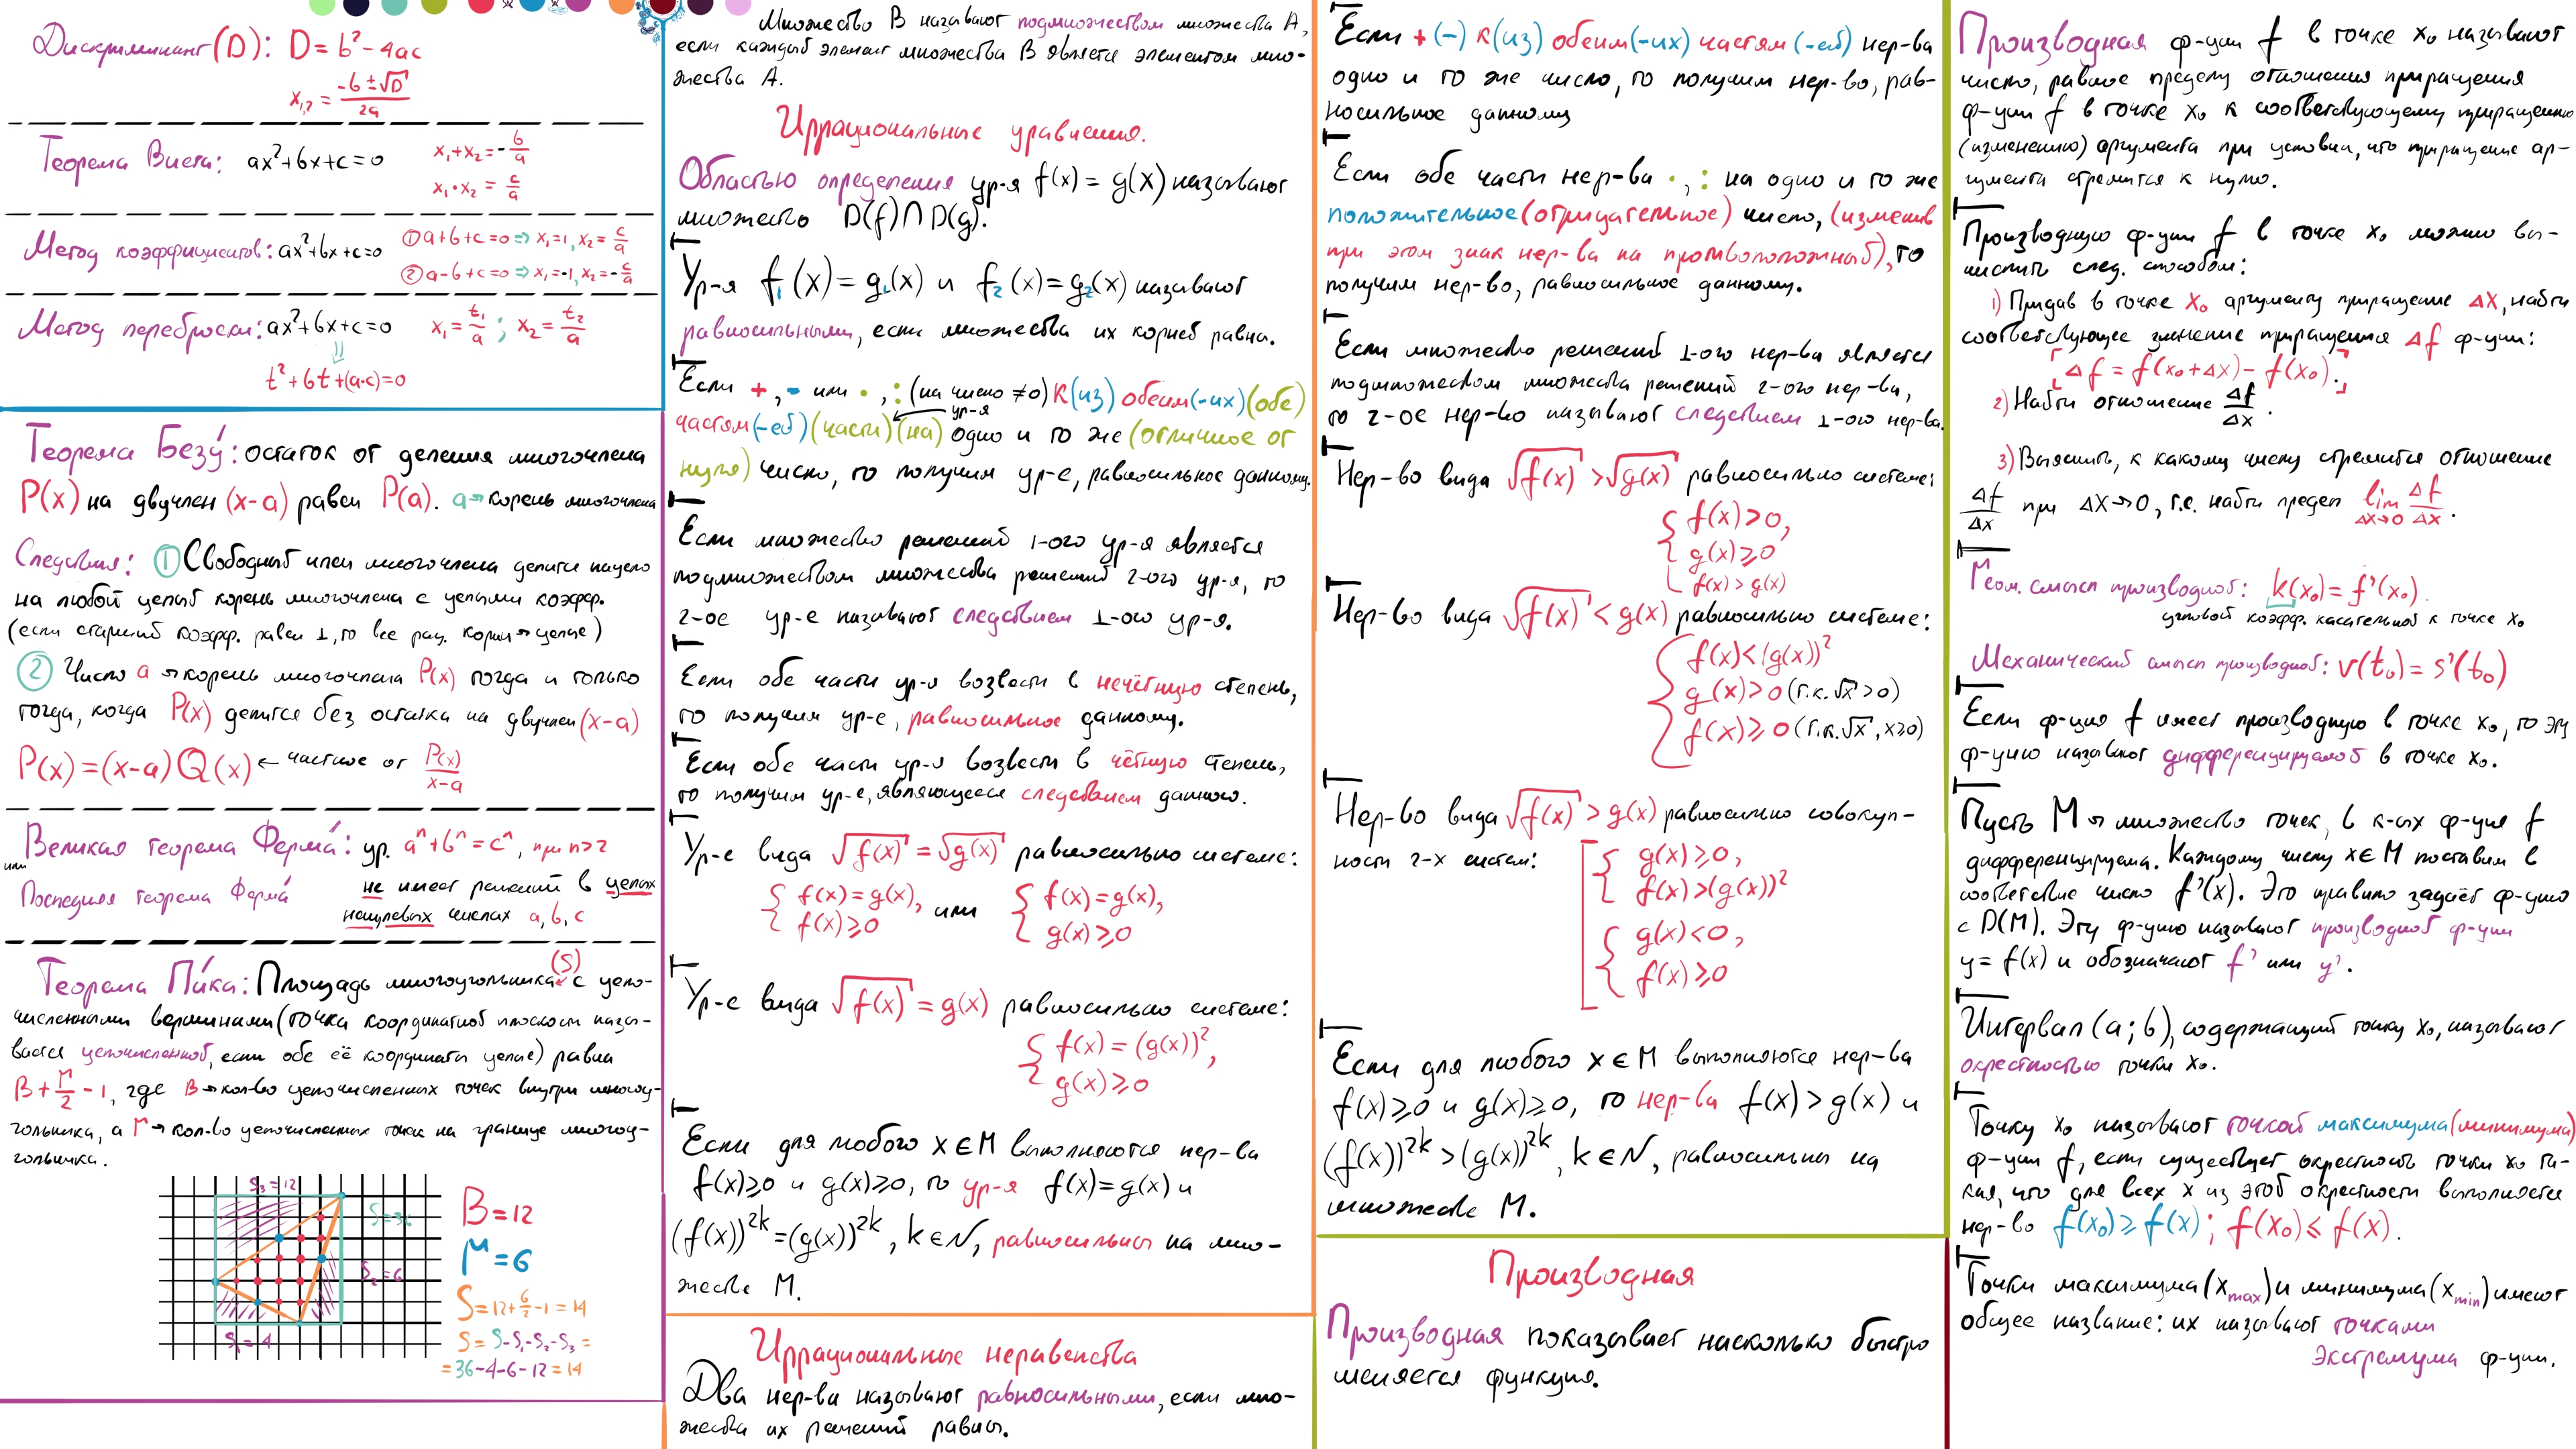 Дискриминант(D): D = b² - 4ac
x₁,₂ = (-b ± √D)/2a
Теорема Виета: ax²+bx+c=0
x₁+x₂ = -b/a
x₁·x₂ = c/a
Метод коэффициентов: ax²+bx+c=0
① a+b+c=0 ⇒ x₁=1, x₂=c/a
② a-b+c=0 ⇒ x₁=-1, x₂=-c/a
Метод переброски: ax²+bx+c=0 x₁ = t₁/a ; x₂ = t₂/a
⇓
t²+bt+(a·c)=0
Теорема Безу́: остаток от деления многочлена
P(x) на двучлен (x-a) равен P(a). a → корень многочлена
Следствия: ① Свободный член многочлена делится нацело
на любой целый корень многочлена с целыми коэфф.
(если старший коэфф. равен 1, то все рац. корни → целые)
② Число a → корень многочлена P(x) тогда и только
тогда, когда P(x) делится без остатка на двучлен (x-a)
P(x) = (x-a)Q(x) ← частное от P(x)/(x-a)
Великая теорема Ферма́: ур. aⁿ+bⁿ=cⁿ, при n>2
или
Последняя теорема Ферма́
не имеет решений в целых
ненулевых числах a, b, c
Теорема Пи́ка: Площадь многоугольника (S) с цело-
численными вершинами (точка координатной плоскости назы-
вается целочисленной, если обе её координаты целые) равна
В + Г/2 - 1, где В → кол-во целочисленных точек внутри многоу-
гольника, а Г → кол-во целочисленных точек на границе многоу-
гольника.
S₃=12
S=36
S₂=6
S₁=4
В=12
Г=6
S=12+6/2-1=14
S=S-S₁-S₂-S₃=
=36-4-6-12=14
Множество В называют подмножеством множества А,
если каждый элемент множества В является элементом мно-
жества А.
Иррациональные уравнения.
Областью определения ур-я f(x) = g(x) называют
множество D(f)∩D(g).
Ур-я f₁(x) = g₁(x) и f₂(x) = g₂(x) называют
равносильными, если множества их корней равны.
Если +, - или ·, : (на число ≠0) к(из) обеим(-их)(обе)
частям(-ей)(части)(на) одно и то же (отличное от
ур-я
нуля) число, то получим ур-е, равносильное данному.
Если множество решений 1-ого ур-я является
подмножеством множества решений 2-ого ур-я, то
2-ое ур-е называют следствием 1-ого ур-я.
Если обе части ур-я возвести в нечётную степень,
то получим ур-е, равносильное данному.
Если обе части ур-я возвести в чётную степень,
то получим ур-е, являющееся следствием данного.
Ур-е вида √f(x) = √g(x) равносильно системе:
{ f(x) = g(x), f(x) ⩾ 0 или { f(x) = g(x), g(x) ⩾ 0
Ур-е вида √f(x) = g(x) равносильно системе:
{ f(x) = (g(x))²,
g(x) ⩾ 0
Если для любого x ∈ M выполняются нер-ва
f(x)⩾0 и g(x)⩾0, то ур-я f(x)=g(x) и
(f(x))²ᵏ = (g(x))²ᵏ, k∈N, равносильны на мно-
жестве М.
Иррациональные неравенства
Два нер-ва называют равносильными, если мно-
жества их решений равны.
Если +(-) к(из) обеим(-их) частям(-ей) нер-ва
одно и то же число, то получим нер-во, рав-
носильное данному
Если обе части нер-ва ·, : на одно и то же
положительное(отрицательное) число, (изменив
при этом знак нер-ва на противоположный), то
получим нер-во, равносильное данному.
Если множество решений 1-ого нер-ва является
подмножеством множества решений 2-ого нер-ва,
то 2-ое нер-во называют следствием 1-ого нер-ва.
Нер-во вида √f(x) > √g(x) равносильно системе:
{ f(x) ⩾ 0,
g(x) ⩾ 0
f(x) > g(x)
Нер-во вида √f(x) < g(x) равносильно системе:
{ f(x) < (g(x))²
g(x) > 0 (т.к. √x > 0)
f(x) ⩾ 0 (т.к. √x, x⩾0)
Нер-во вида √f(x) > g(x) равносильно совокуп-
ности 2-х систем:
[ { g(x) ⩾ 0,
f(x) > (g(x))²
{ g(x) < 0,
f(x) ⩾ 0
Если для любого x ∈ M выполняются нер-ва
f(x)⩾0 и g(x)⩾0, то нер-ва f(x) > g(x) и
(f(x))²ᵏ > (g(x))²ᵏ, k∈N, равносильны на
множестве М.
Производная
Производная показывает насколько быстро
меняется функция.
Производная ф-ции f в точке x₀ называют
число, равное пределу отношения приращения
ф-ции f в точке x₀ к соответствующему приращению
(изменению) аргумента при условии, что приращение ар-
гумента стремится к нулю.
Производную ф-ции f в точке x₀ можно вы-
числить след. способом:
1) Придав в точке x₀ аргументу приращение Δx, найти
соответствующее значение приращения Δf ф-ции:
[Δf = f(x₀+Δx) - f(x₀).]
2) Найти отношение Δf/Δx.
3) Выяснить, к какому числу стремится отношение
Δf/Δx при Δx→0, т.е. найти предел lim Δx→0 Δf/Δx.
Геом. смысл производной: k(x₀) = f'(x₀).
угловой коэфф. касательной к точке x₀
Механический смысл производной: v(t₀) = s'(t₀)
Если ф-ция f имеет производную в точке x₀, то эту
ф-цию называют дифференцируемой в точке x₀.
Пусть М → множество точек, в к-ых ф-ция f
дифференцируема. Каждому числу x∈M поставим в
соответствие число f'(x). Это правило задаёт ф-цию
с D(M). Эту ф-цию называют производной ф-ции
y = f(x) и обозначают f' или y'.
Интервал (a; b), содержащий точку x₀, называют
окрестностью точки x₀.
Точку x₀ называют точкой максимума(минимума)
ф-ции f, если существует окрестность точки x₀ та-
кая, что для всех x из этой окрестности выполняется
нер-во f(x₀) ⩾ f(x); f(x₀) ⩽ f(x).
Точки максимума (xmax) и минимума (xmin) имеют
общее название: их называют точками
экстремума ф-ции.